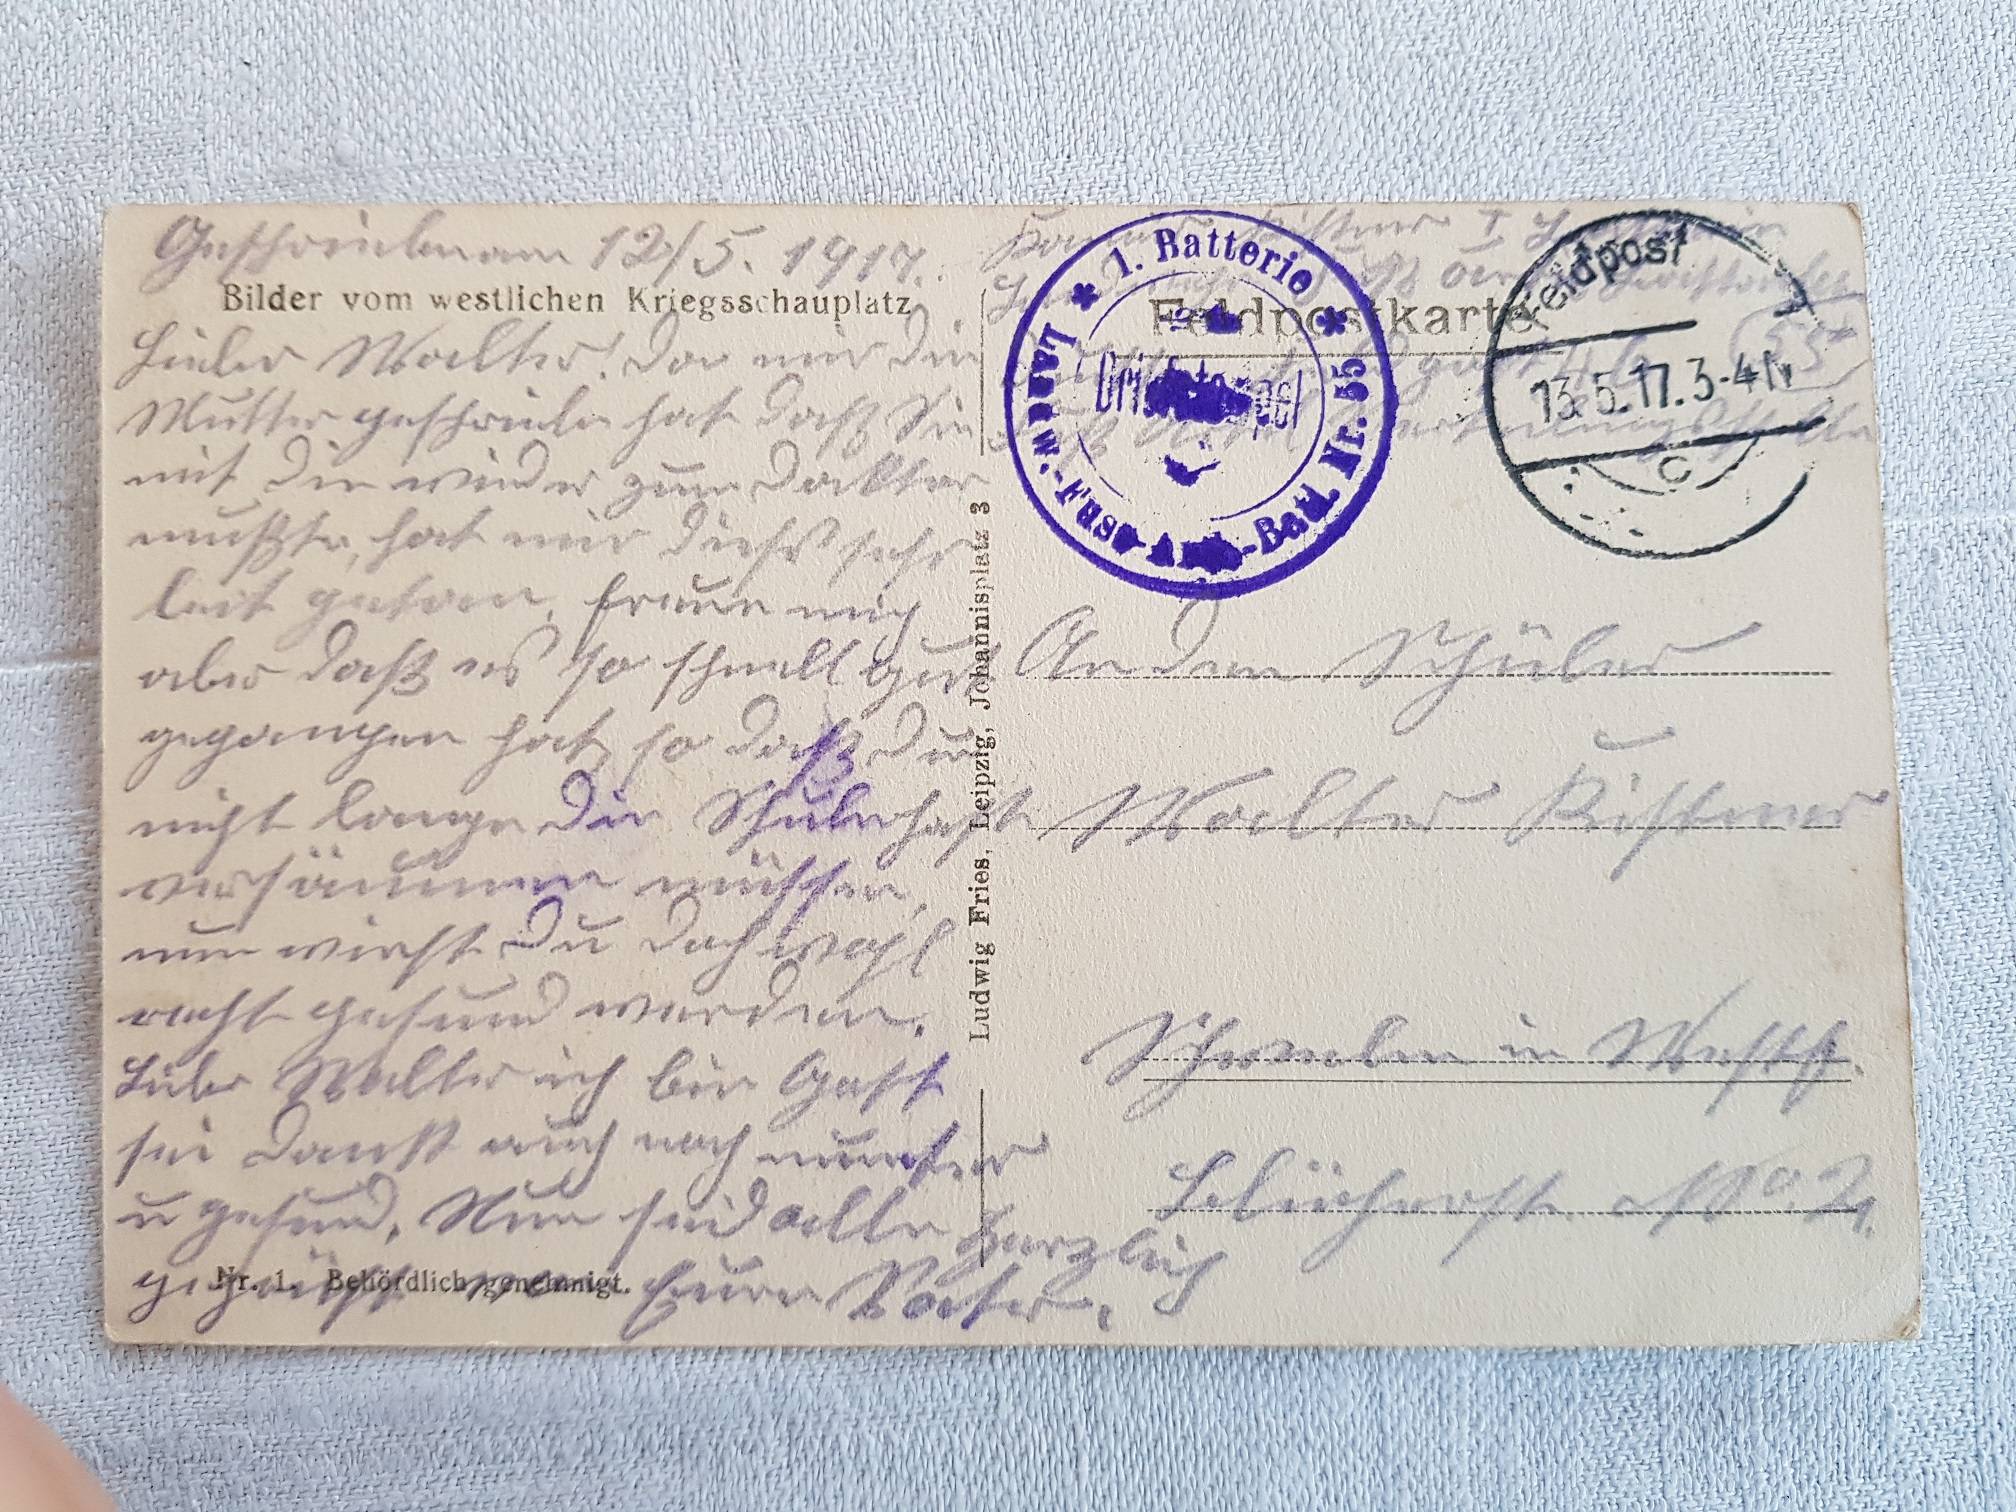 Geschrieben am 12/5. 1917.
Bilder vom westlichen Kriegsschauplatz
Lieber Walter! Da mir die
Mutter geschrieben hat daß Sie
mit Dir wieder zum Doktor
mußte, hat mir dieß sehr
leit getan, freue mich
aber daß es so schnell gut
gegangen hat, so daß Du
nicht lange die Schule hast
versäumen müssen,
nun wirst Du doch wohl
recht gesund werden.
Lieber Walter ich bin Gott
sei Dank auch noch munter
u gesund, Nun seid alle herzlich
gegrüßt von Eurem Vater.
Nr. 1. Behördlich genehmigt.
Ludwig Fries, Leipzig, Johannisplatz 3
Feldpostkarte
* 1. Batterie *
Landw.-Fuss-Bat. Nr. 55
Briefstempel
Feldpost
13.5.17.3-4N
C
An den Schüler
Walter Kistner
Schwelm in Westf.
Blücherstr. No. 21.